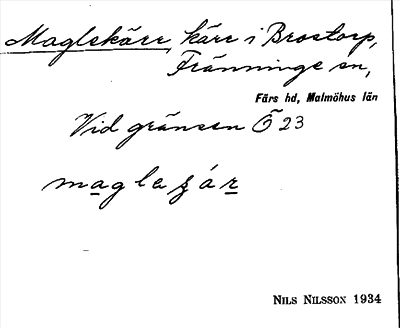 Maglekärr, kärr i Brostorp,
Fränninge sn,
Färs hd, Malmöhus län
Vid gränsen Ö 23
NILS NILSSON 1934